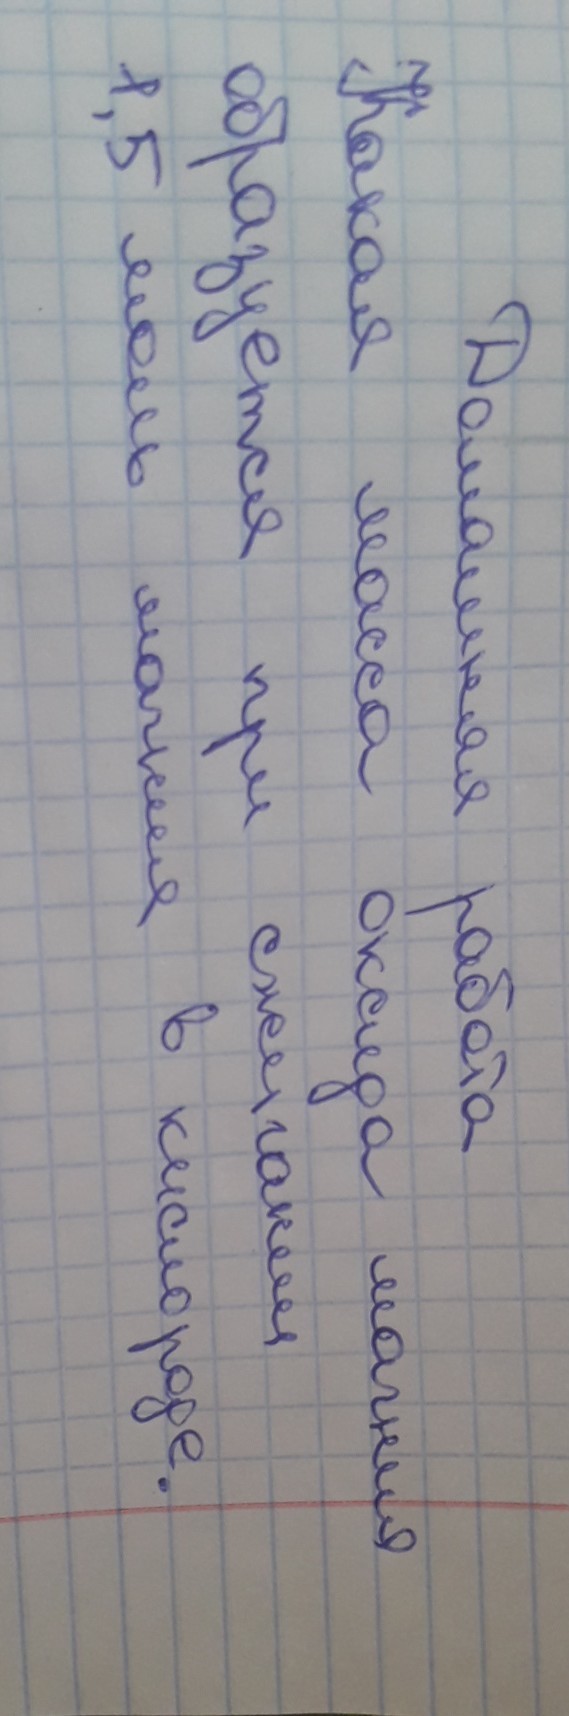 Домашняя работа
Какая масса оксида магния
образуется при сжигании
1,5 моль магния в кислороде.